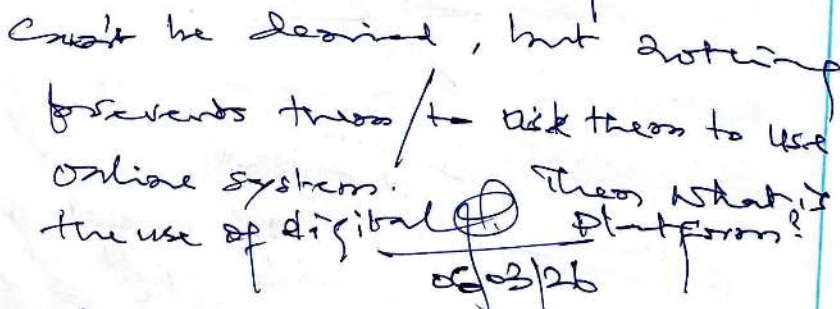 Can't be denied, but nothing
prevents them / to ask them to use
online system. Then what is
the use of digital Platform?
06/03/26